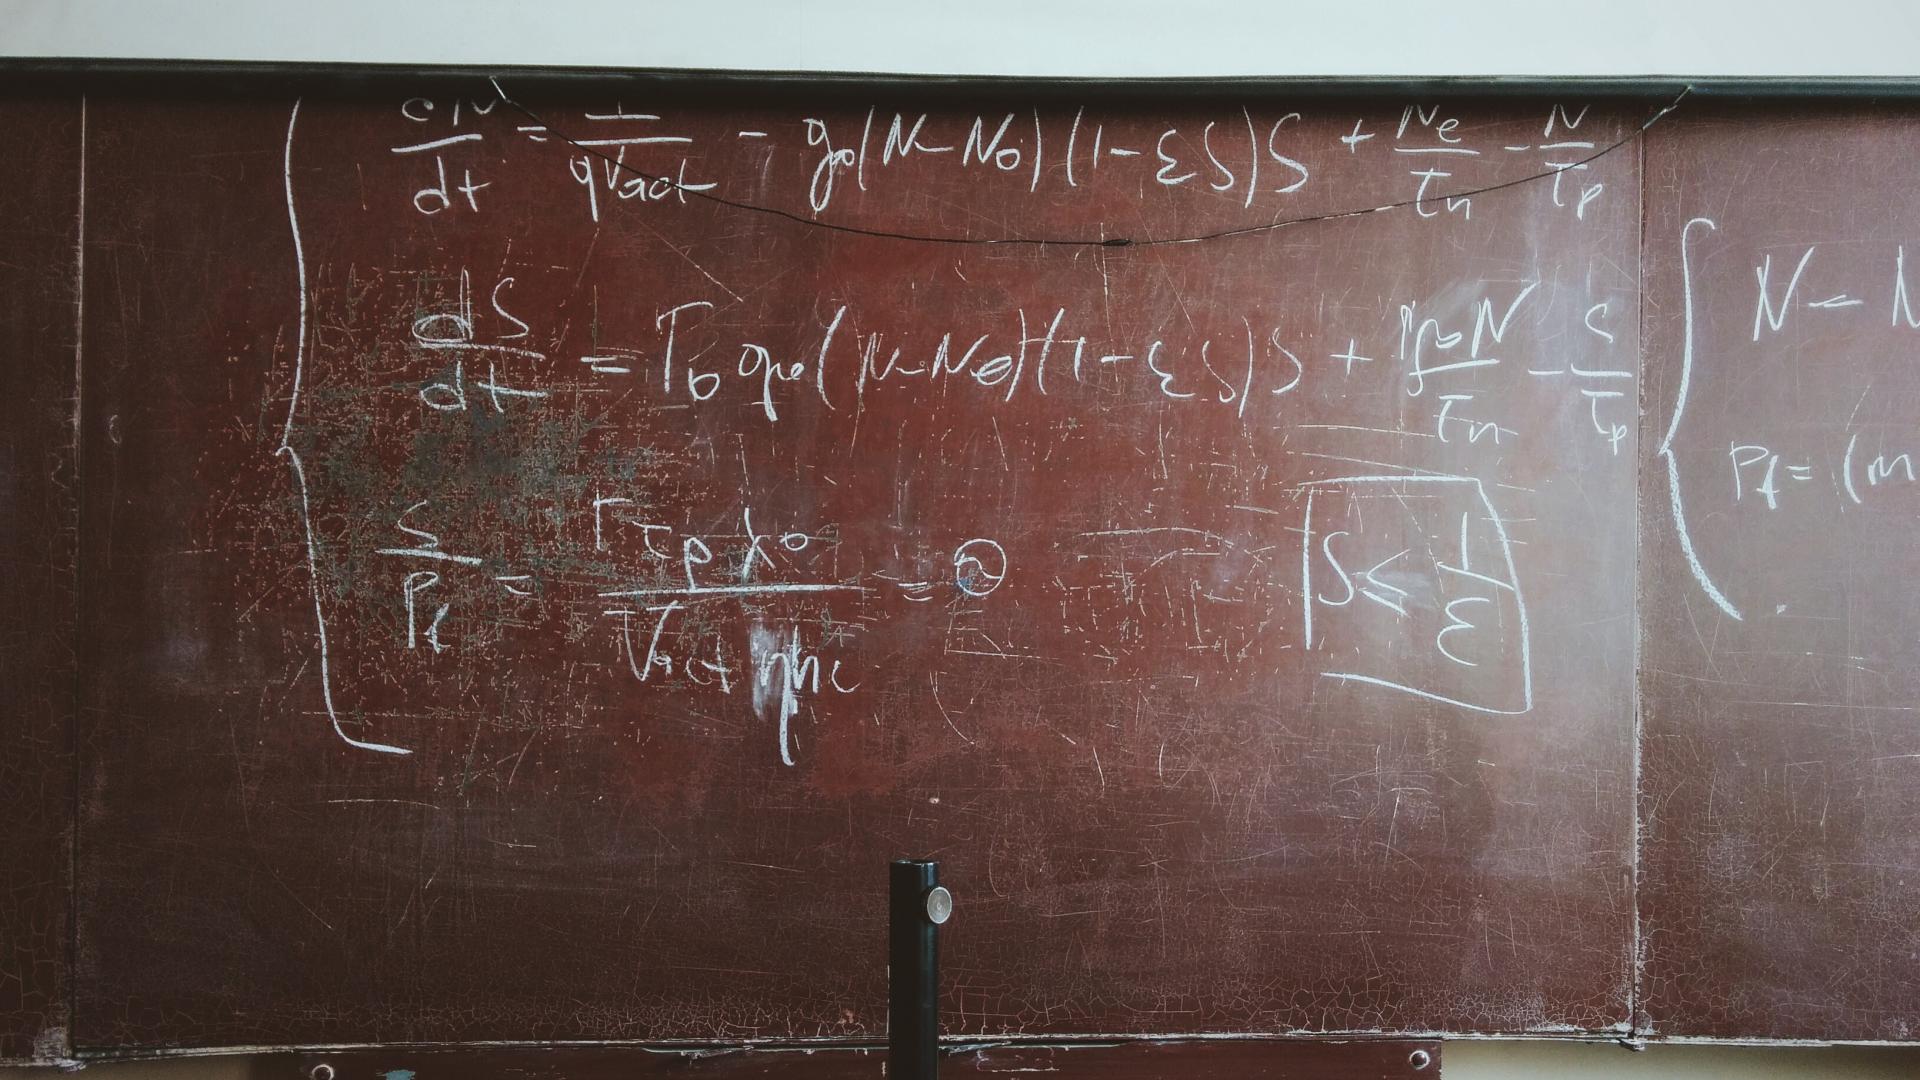 dN/dt = I/qVact - g₀(N-N₀)(1-εS)S + Ne/τn - N/τp
dS/dt = Γ₀g₀(N-N₀)(1-εS)S + N/τn - S/τp
S/Pf = Γτpλ₀/Vactηhc =
S ≤ 1/ε
N -
Pf = (m